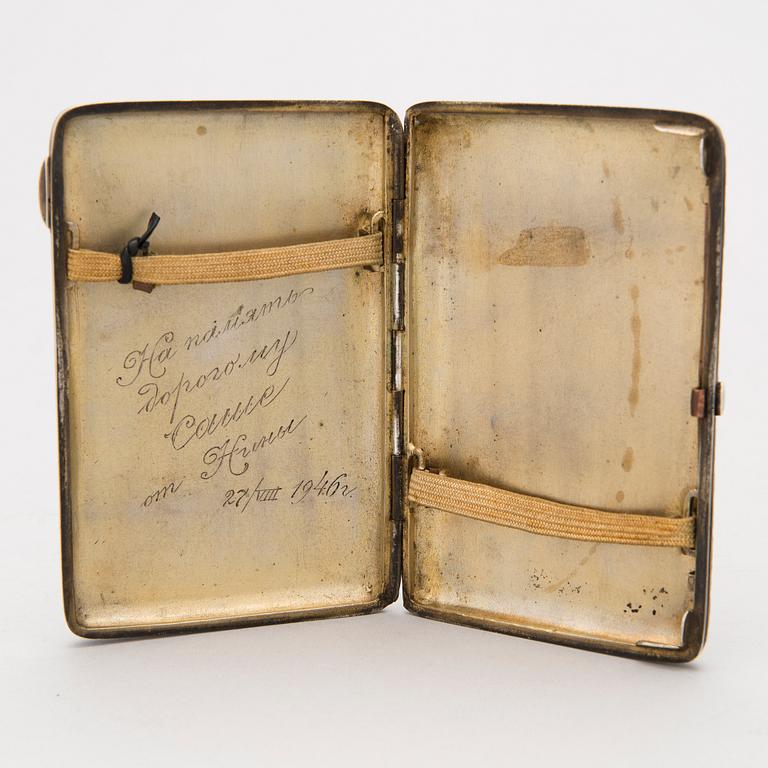 На память
дорогому
Саше
от Нины
27/VIII 1946г.